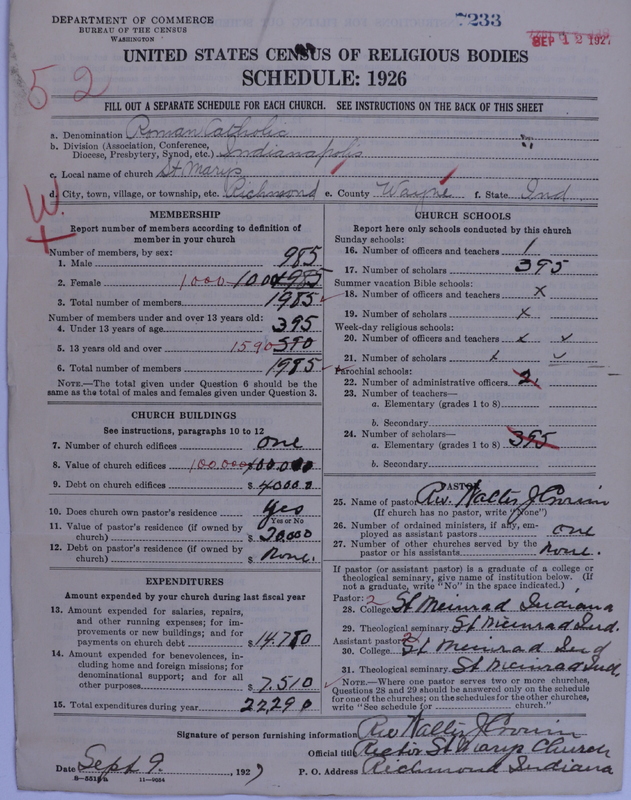 DEPARTMENT OF COMMERCE
BUREAU OF THE CENSUS
WASHINGTON
7233
SEP 12 1927
52
UNITED STATES CENSUS OF RELIGIOUS BODIES
SCHEDULE: 1926
FILL OUT A SEPARATE SCHEDULE FOR EACH CHURCH. SEE INSTRUCTIONS ON THE BACK OF THIS SHEET
a. Denomination Roman Catholic
b. Division (Association, Conference,
Diocese, Presbytery, Synod, etc.) Indianapolis
c. Local name of church St Marys
d. City, town, village, or township, etc. Richmond e. County Wayne f. State Ind
W.
MEMBERSHIP
Report number of members according to definition of
member in your church
Number of members, by sex:
1. Male 985
2. Female 1000 1000 985
3. Total number of members 1985
Number of members under and over 13 years old:
4. Under 13 years of age 395
5. 13 years old and over 1590 590
6. Total number of members 1985
NOTE.—The total given under Question 6 should be
same as the total of males and females given under Question 3.
CHURCH BUILDINGS
See instructions, paragraphs 10 to 12
7. Number of church edifices one
8. Value of church edifices 100,000 100,000
9. Debt on church edifices $ 4000.0
10. Does church own pastor's residence yes
Yes or No
11. Value of pastor's residence (if owned by
church) $ 20,000
12. Debt on pastor's residence (if owned by
church) $ None.
EXPENDITURES
Amount expended by your church during last fiscal year
13. Amount expended for salaries, repairs,
and other running expenses; for im-
provements or new buildings; and for
payments on church debt $ 14.780
14. Amount expended for benevolences, in-
cluding home and foreign missions; for
denominational support; and for all
other purposes $ 7.510
15. Total expenditures during year 22,290
CHURCH SCHOOLS
Report here only schools conducted by this church
Sunday schools:
16. Number of officers and teachers 1
17. Number of scholars 395
Summer vacation Bible schools:
18. Number of officers and teachers x
19. Number of scholars x
Week-day religious schools:
20. Number of officers and teachers x
21. Number of scholars x
Parochial schools:
22. Number of administrative officers 2
23. Number of teachers—
a. Elementary (grades 1 to 8)
b. Secondary
24. Number of scholars—
a. Elementary (grades 1 to 8) 395
b. Secondary
PASTOR
25. Name of pastor Rev. Walter J Cronin
(If church has no pastor, write "None")
26. Number of ordained ministers, if any, em-
ployed as assistant pastors one
27. Number of other churches served by the
pastor or his assistants None.
If pastor (or assistant pastor) is a graduate of a college or
theological seminary, give name of institution below. (If
not a graduate, write "No" in the space indicated.)
Pastor: 2
28. College St Meinrad Indiana
29. Theological seminary St Meinrad Ind.
Assistant pastor:
30. College St Meinrad Ind
31. Theological seminary St Meinrad Ind.
NOTE.—Where one pastor serves two or more churches,
Questions 28 and 29 should be answered only on the schedule
for one of the churches; on the schedules for the other churches,
write "See schedule for church."
Signature of person furnishing information Rev Walter J Cronin
Official title Rector St Marys Church
Date Sept 9. 1927 P. O. Address Richmond Indiana
11—9054